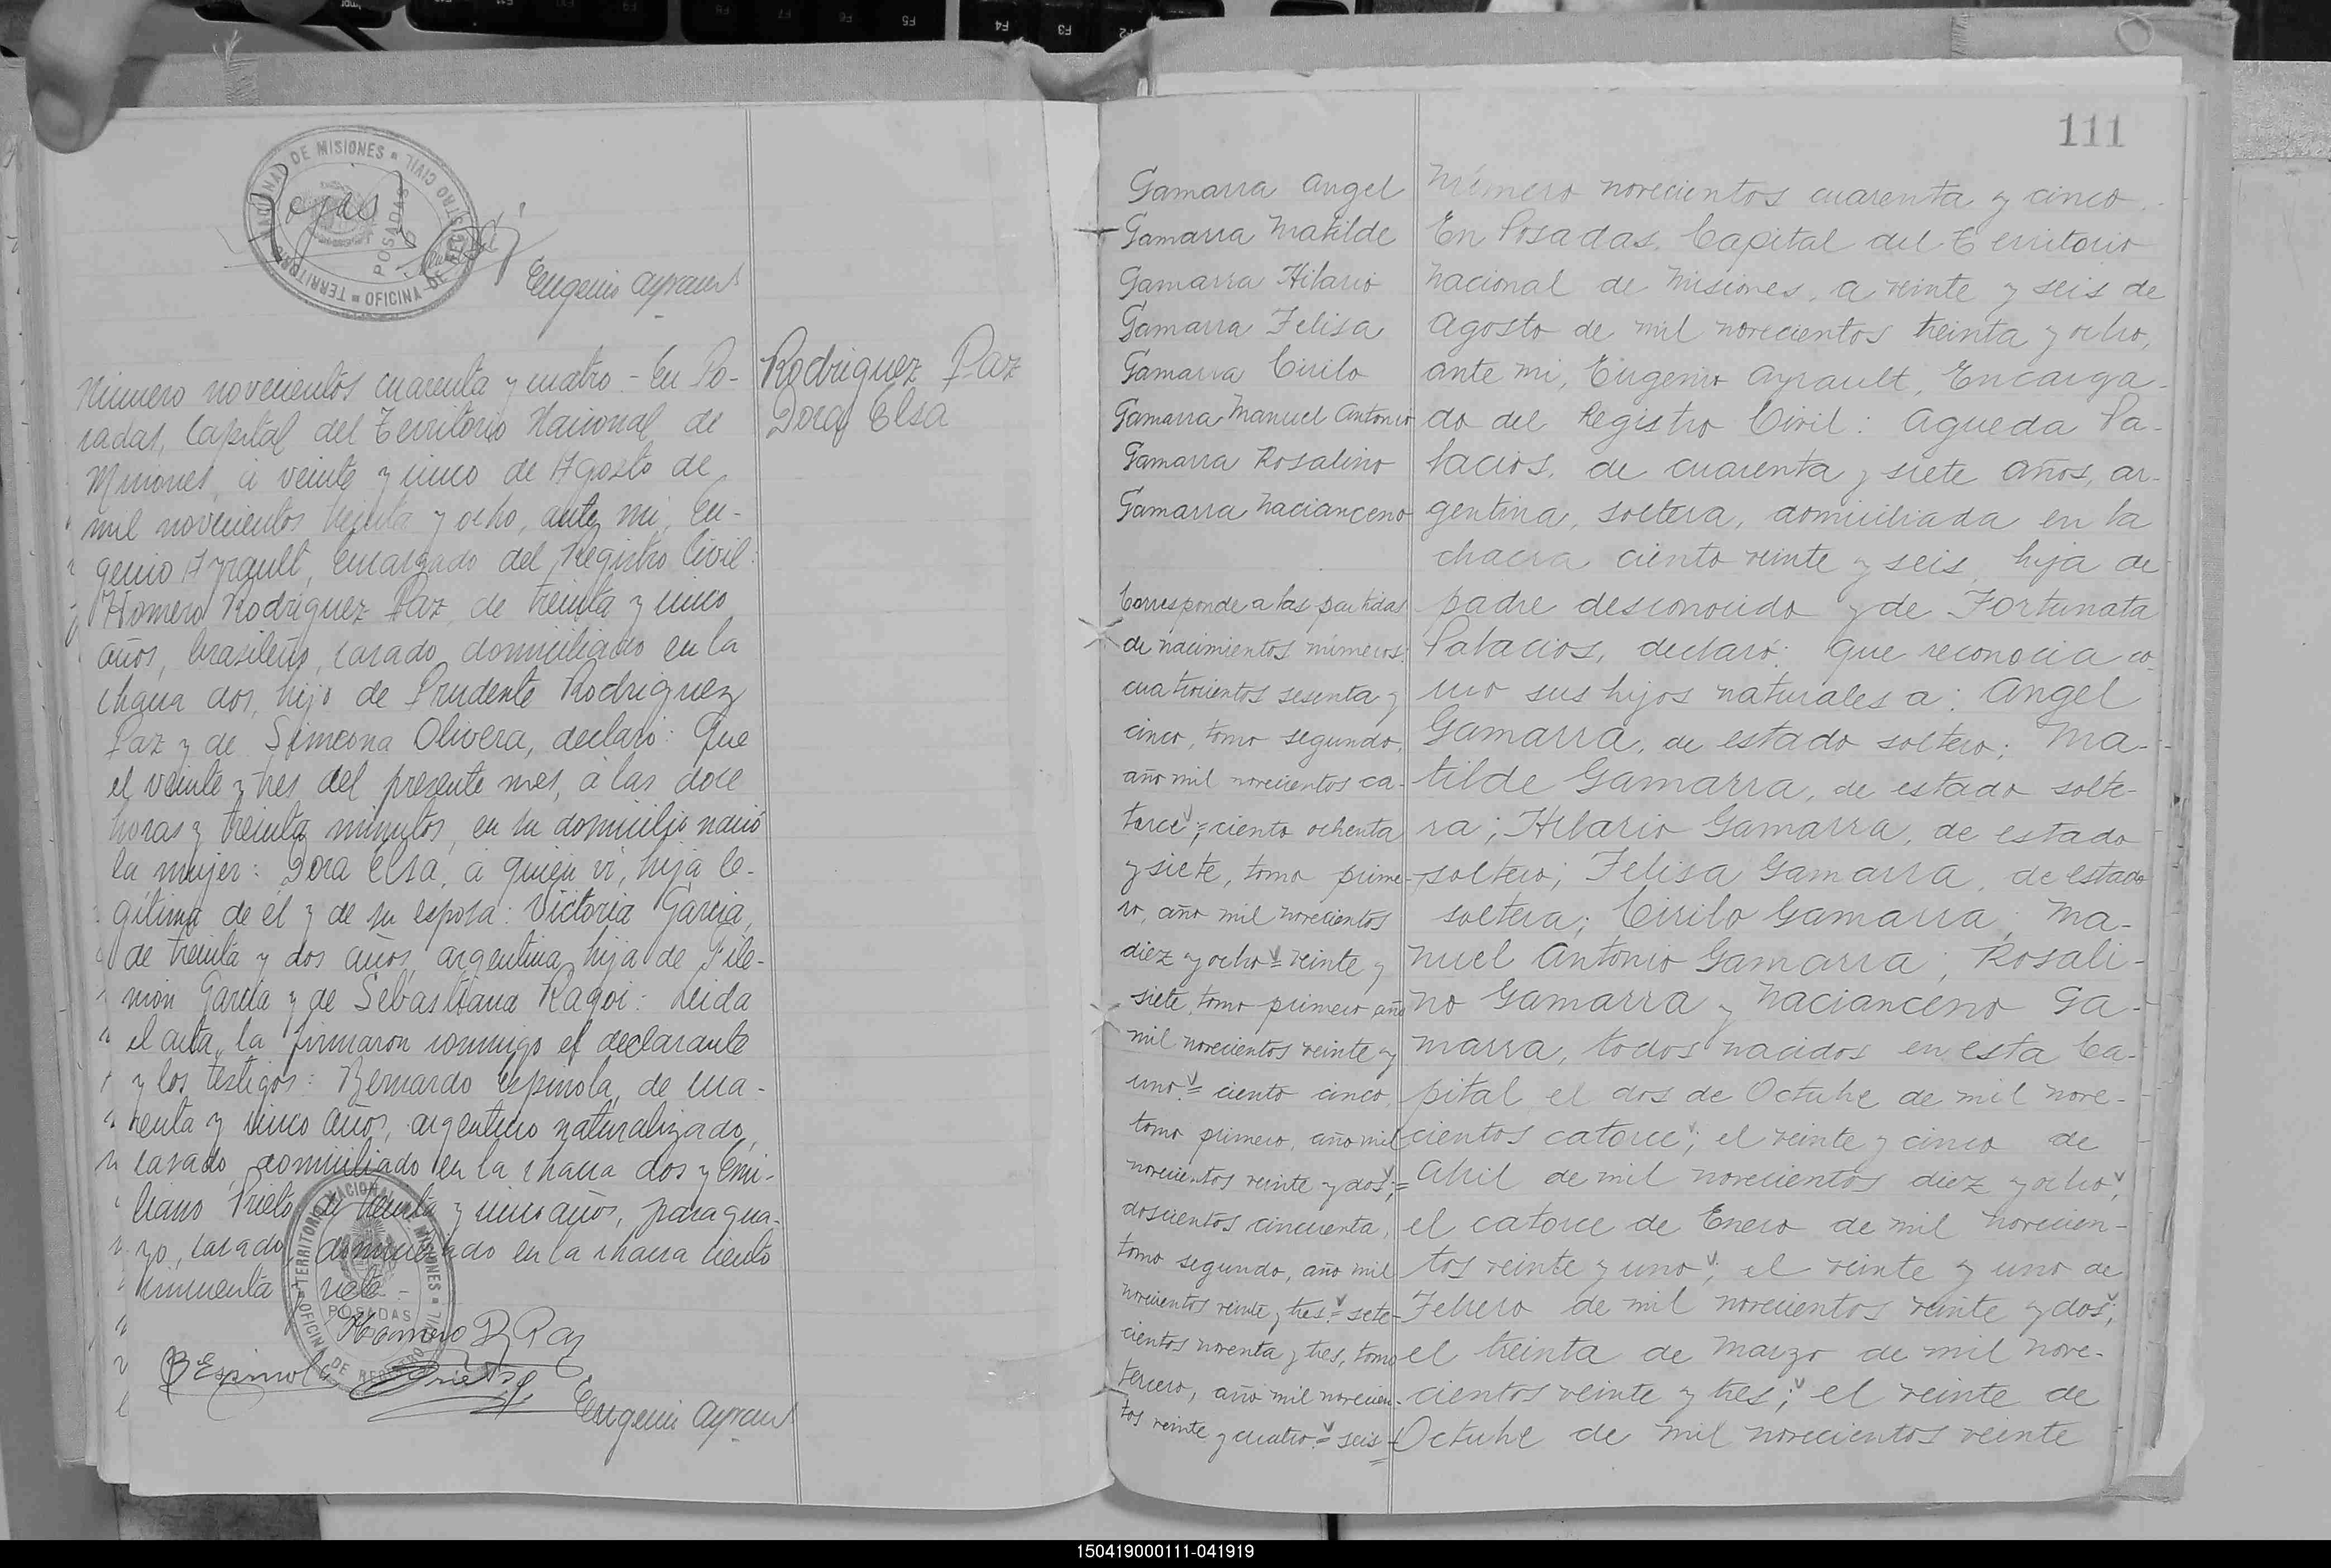 TERRITORIO NACIONAL DE MISIONES = OFICINA DE REGISTRO CIVIL
POSADAS
Eugenio Ayrault
Rodriguez Paz
Dora Elsa
Número novecientos cuarenta y cuatro - En Po-
sadas, Capital del Territorio Nacional de
Misiones, á veinte y cinco de Agosto de
mil novecientos treinta y ocho, ante mi, Eu-
genio Ayrault, Encargado del Registro Civil:
Homero Rodriguez Paz, de treinta y cinco
años, brasileño, casado, domiciliado en la
chacra dos, hijo de Prudente Rodriguez
Paz y de Simeona Olivera, declaró: Que
el veinte y tres del presente mes, á las doce
horas y treinta minutos, en su domicilio nació
la mujer: Dora Elsa, á quien vi, hija le-
gítima de él y de su esposa: Victoria Garcia,
de treinta y dos años, argentina, hija de File-
món García y de Sebastiana Ragoi: Leida
el acta, la firmaron conmigo el declarante
y los testigos: Bernardo Espinola, de cua-
renta y cinco años, argentino naturalizado,
casado, domiciliado en la chacra dos y Emi-
liano Prieto, de treinta y cinco años, paragua-
yo, casado, domiciliado en la chacra ciento
cincuenta y siete -
TERRITORIO NACIONAL DE MISIONES = OFICINA DE REGISTRO CIVIL
POSADAS
Homero R Paz
B Espinola
Prieto
Eugenio Ayrault
111
Gamarra Angel
Gamarra Matilde
Gamarra Hilario
Gamarra Felisa
Gamarra Cirilo
Gamarra Manuel Antonio
Gamarra Rosalino
Gamarra Nacianceno
Corresponde a las partidas
de nacimientos números:
cuatrocientos sesenta y
cinco, tomo segundo,
año mil novecientos ca-
torce; = ciento ochenta
y siete, tomo prime-
ro, año mil novecientos
diez y ocho = veinte y
siete, tomo primero año
mil novecientos veinte y
uno = ciento cinco,
tomo primero, año mil
novecientos veinte y dos; =
doscientos cincuenta,
tomo segundo, año mil
novecientos veinte y tres = sete-
cientos noventa y tres, tomo
tercero, año mil novecien-
tos veinte y cuatro = seis-
Número novecientos cuarenta y cinco.
En Posadas, Capital del Territorio
Nacional de Misiones, a veinte y seis de
Agosto de mil novecientos treinta y ocho,
ante mi, Eugenio Ayrault, Encarga-
do del Registro Civil: Agueda Pa-
lacios, de cuarenta y siete años, ar-
gentina, soltera, domiciliada en la
chacra ciento veinte y seis, hija de
padre desconocido y de Fortunata
Palacios, declaró: Que reconocia co-
mo sus hijos naturales a: Angel
Gamarra, de estado soltero; Ma-
tilde Gamarra, de estado solte-
ra; Hilario Gamarra, de estado
soltero; Felisa Gamarra, de estado
soltera; Cirilo Gamarra; Ma-
nuel Antonio Gamarra; Rosali-
no Gamarra y Nacianceno Ga-
marra, todos nacidos en esta Ca-
pital, el dos de Octubre de mil nove-
cientos catorce; el veinte y cinco de
Abril de mil novecientos diez y ocho,
el catorce de Enero de mil novecien-
tos veinte y uno; el veinte y uno de
Febrero de mil novecientos veinte y dos;
el treinta de Marzo de mil nove-
cientos veinte y tres; el veinte de
Octubre de mil novecientos veinte
150419000111-041919